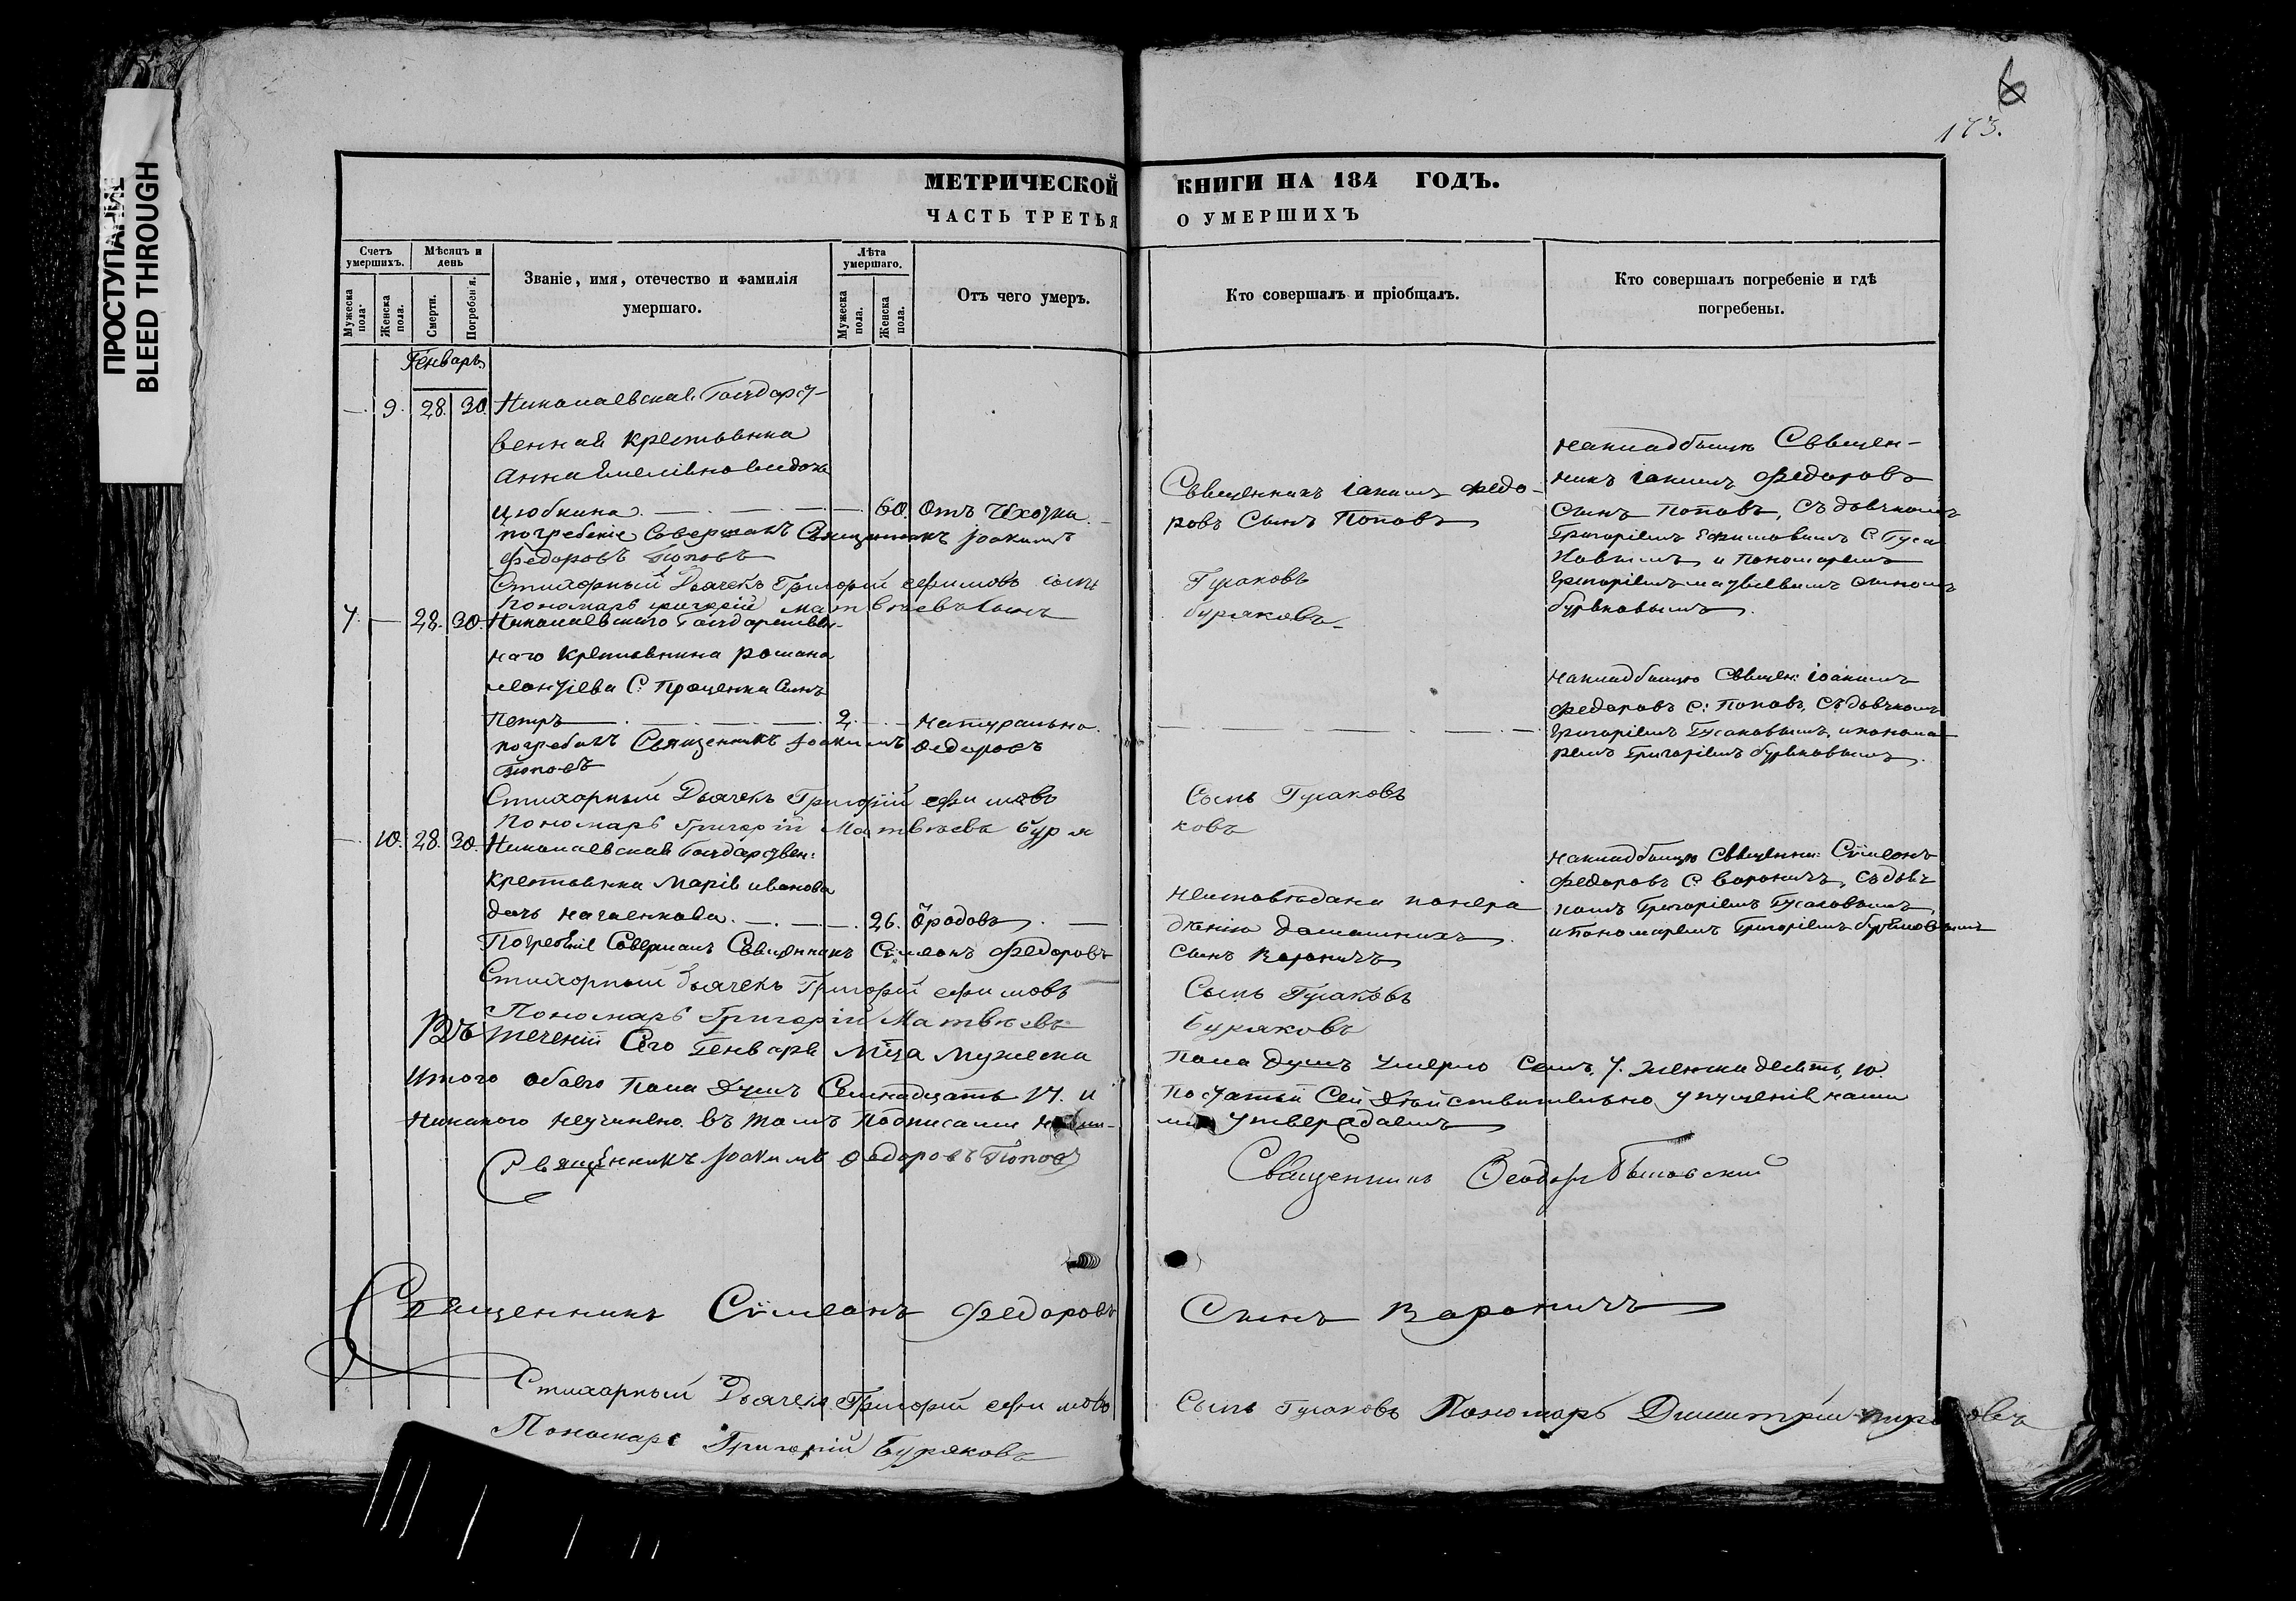 6
173.
ПРОСТУПАНИЕ
BLEED THROUGH
МЕТРИЧЕСКОЙ КНИГИ НА 184 ГОДЪ.
ЧАСТЬ ТРЕТЬЯ О УМЕРШИХЪ
Счетъ умершихъ.
Мѣсяцъ и день
Званіе, имя, отечество и фамилія умершаго.
Лѣта умершаго.
Отъ чего умеръ.
Кто совершалъ и пріобщалъ.
Кто совершалъ погребеніе и гдѣ погребены.
Мужеска пола.
Женска пола.
Смерти.
Погребенія.
Мужеска пола.
Женска пола.
Генварь
9. 28. 30. Николаевская Государст-
венная крестьянка
Анна Емелiянова вдова
60. Отъ
погребеніе Совершалъ Священникъ Іоакимъ
Федоровъ Поповъ
Стихарный Дьячекъ Григорій Ефимовъ сынъ
Пономарь Григорій Матвѣевъ сынъ
Священникъ Іакимъ Федо-
ровъ Сынъ Поповъ
Гусаковъ
Буряковъ
на кладбищѣ Священ-
никъ Іакимъ Федоровъ
Сынъ Поповъ, съ дьячкомъ
Григоріемъ Ефимовымъ С. Гуса
ковымъ и пономаремъ
Григоріемъ Матвѣевымъ сыномъ
Буряковымъ.
7. 28. 30. Николаевскаго Государствен-
наго крестьянина Романа
С. Проценка Сынъ
Петръ 2. натурально.
погребалъ Священникъ Іоакимъ Федоровъ
Поповъ
Стихарный Дьячекъ Григорій Ефимовъ
Пономарь Григорій Матвѣевъ Буря
Сынъ Гусаковъ
ковъ
на кладбищѣ Священ: Іоакимъ
Федоровъ С: Поповъ, Съ дьячкомъ
Григоріемъ Гусаковымъ, и понома-
ремъ Григоріемъ Буряковымъ.
10. 28. 30. Николаевская Государствен:
крестьянка Марія Иванова
дочь 26. Ѿ родовъ.
Погребеніе Совершалъ Священникъ Сѵмеонъ Федоровъ
Стихарный Дьячекъ Григорій Ефимовъ
Пономарь Григорій Матвѣевъ
неисповѣдана по нера
дѣнію домашнихъ.
Сынъ Вороничъ
Сынъ Гусаковъ
Буряковъ
на кладбищѣ Священни: Сѵмеонъ
Федоровъ С. Вороничъ, съ дьяч
комъ Григоріемъ Гусаковымъ,
и пономаремъ Григоріемъ Буряковымъ
Въ теченіи Сего Генваря М͠ца мужеска пола душъ умерло Семъ, 7. женска десять, 10.
Итого обоего пола душъ Семнадцать 17. и по статьи Сей дѣйствительно упущенія нами
никакого неучинено въ томъ подписами утверждаемъ
Священникъ Іоакимъ Федоровъ Поповъ
Священникъ Феодоръ
Священникъ Сѵмеонъ Федоровъ Сынъ Вороничъ
Стихарный Дьячекъ Григорій Ефимовъ Сынъ Гусаковъ Пономарь Димитрій
Пономарь Григорій Буряковъ